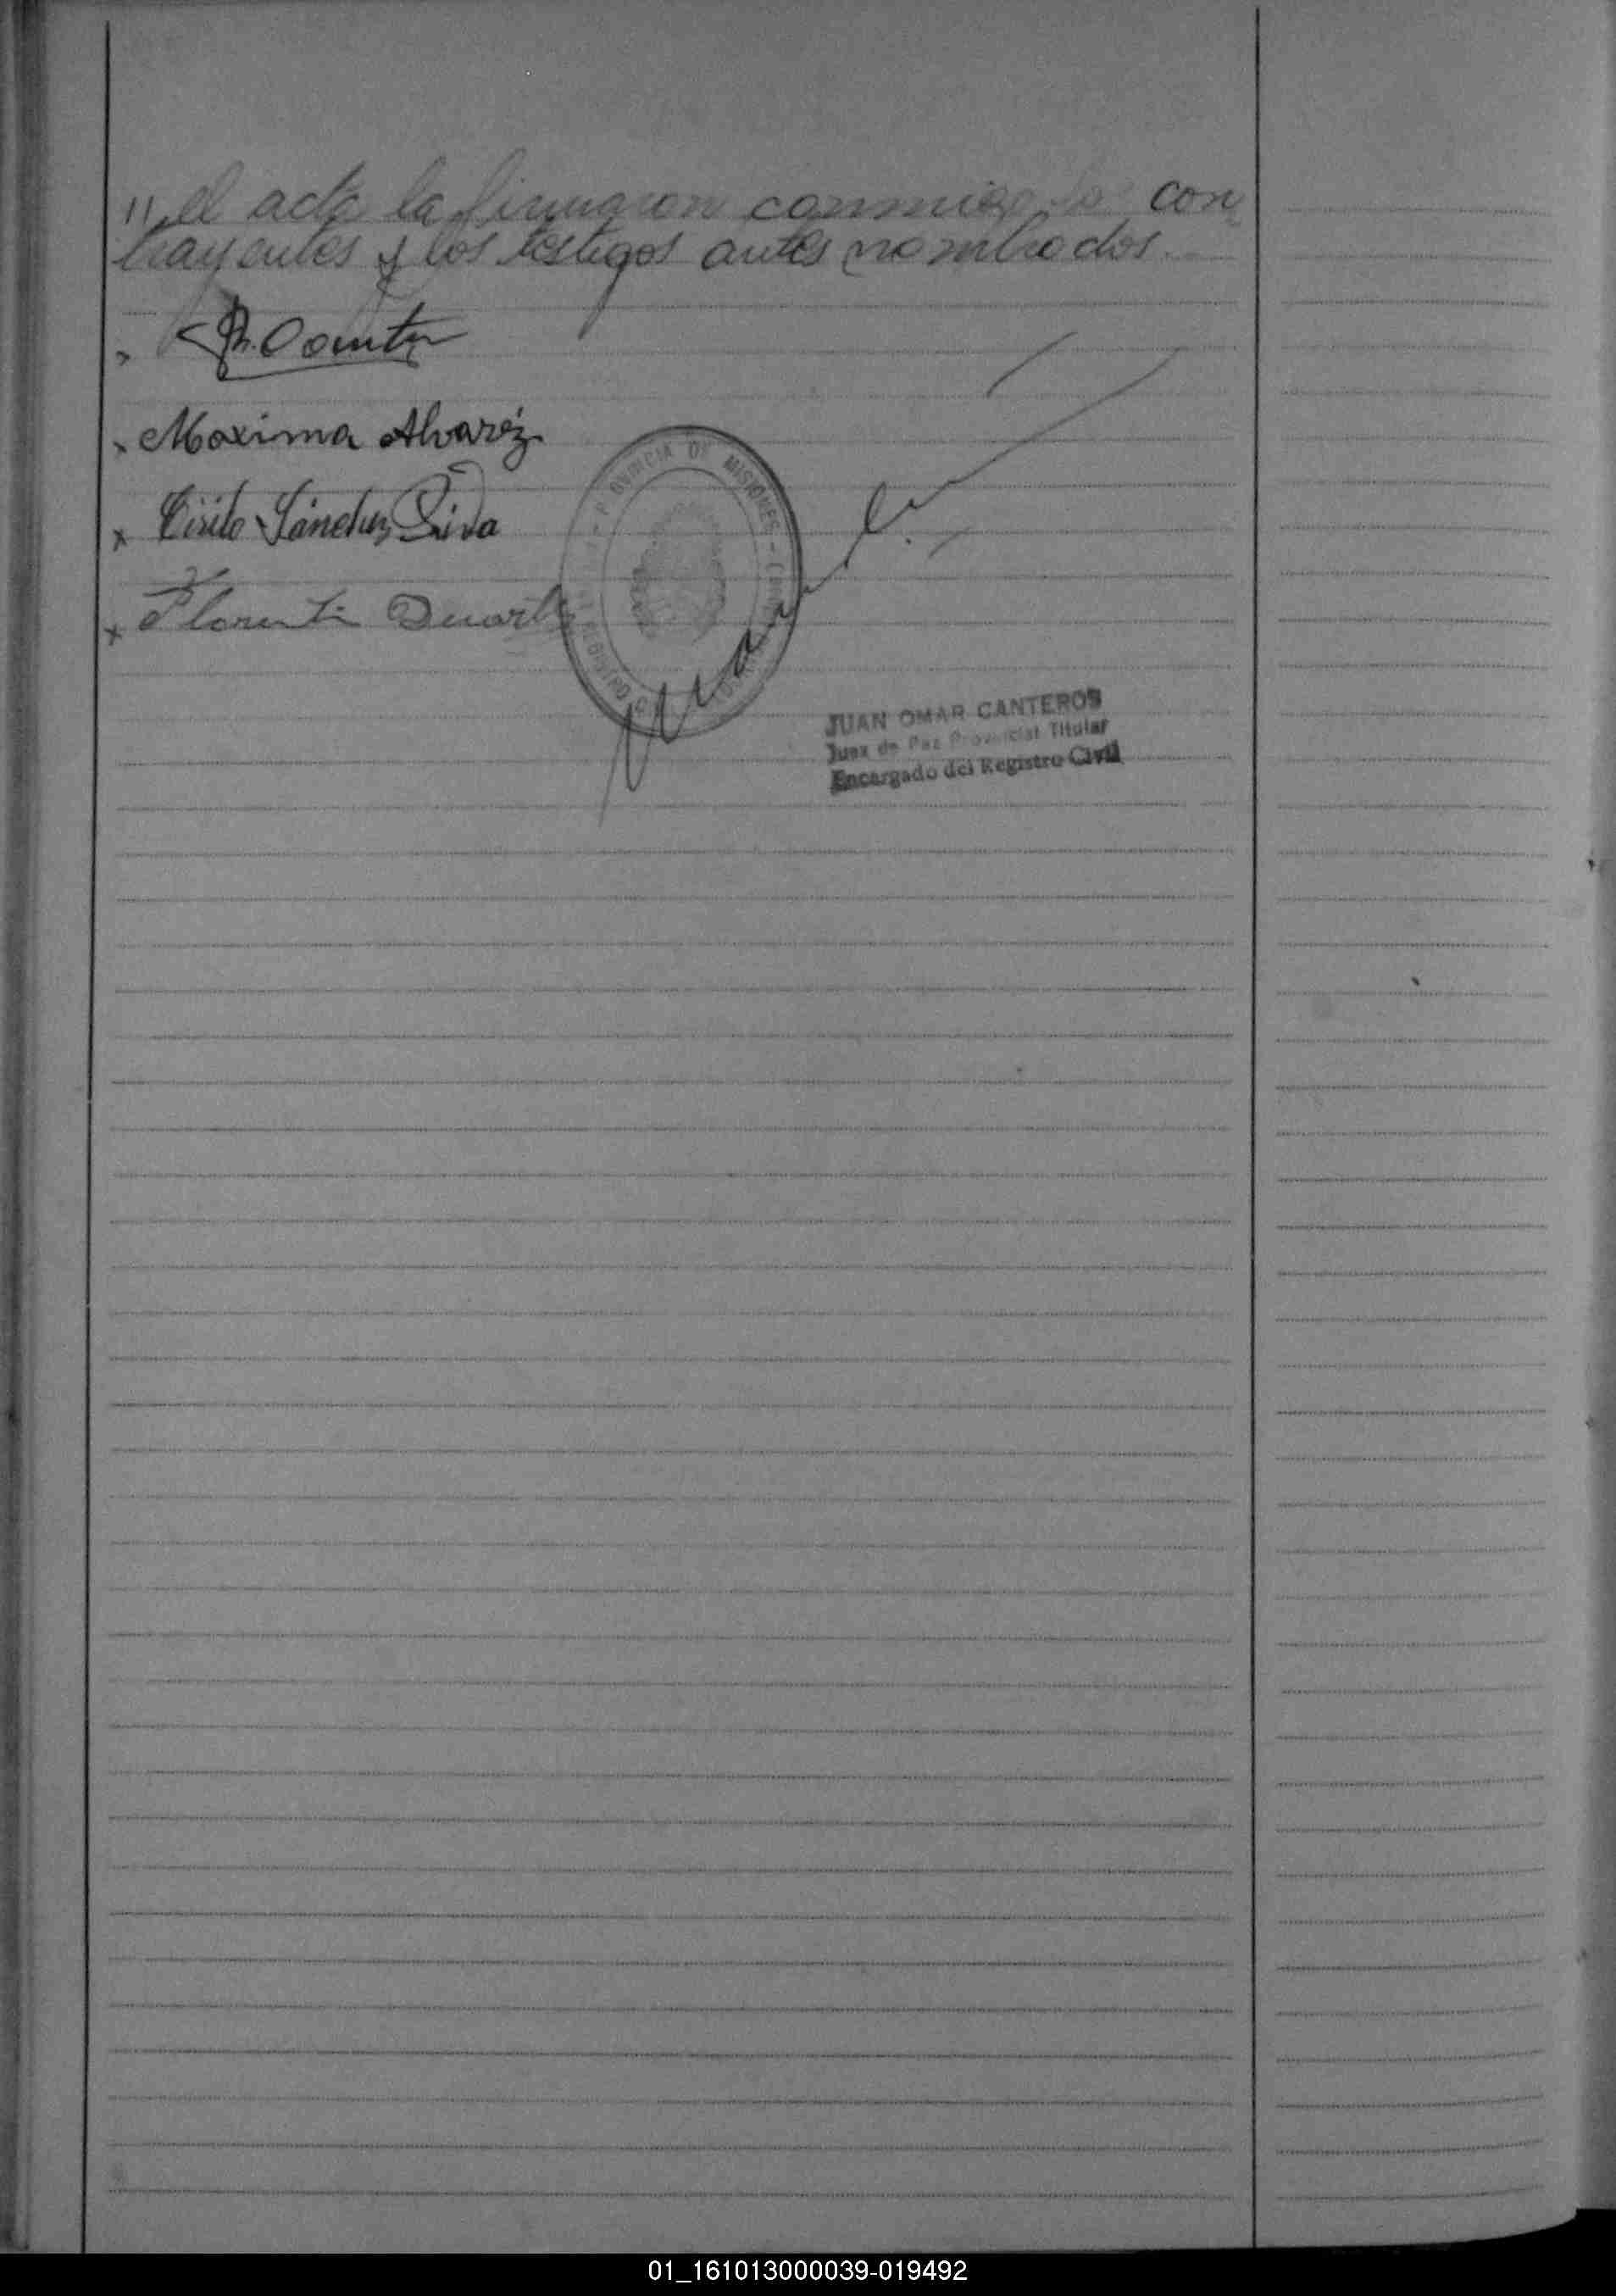 " el acta la firmaron conmigo los con-
trayentes y los testigos antes nombrados.
Maxima Alvaréz
Cirilo Sánchez
Florentin Duarte
PROVINCIA DE MISIONES
JUAN OMAR CANTEROS
Juez de Paz Provincial Titular
Encargado del Registro Civil
01_161013000039-019492